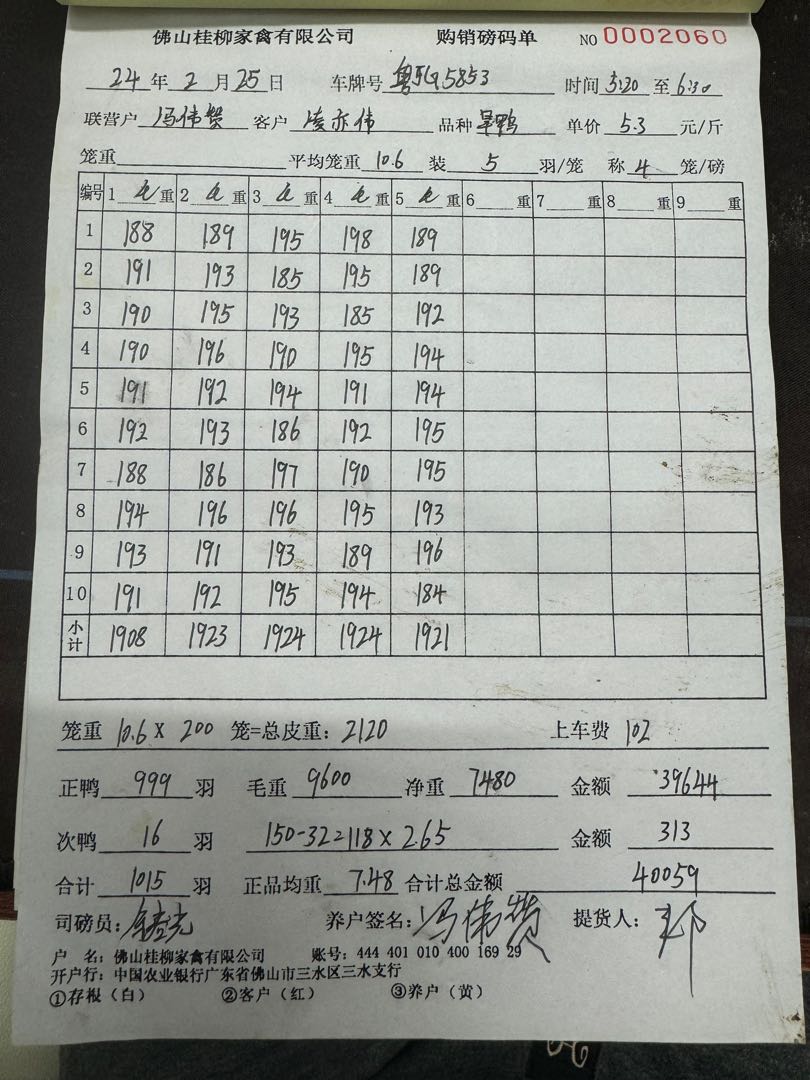 佛山桂柳家禽有限公司 购销磅码单 NO 0002060
24 年 2 月 25 日 车牌号 时间 5:20 至 6:30
联营户 冯伟赞 客户 凌亦伟 品种 旱鸭 单价 5.3 元/斤
笼重 平均笼重 10.6 装 5 羽/笼 称 4 笼/磅
编号 1 毛 重 2 毛 重 3 毛 重 4 毛 重 5 毛 重 6 重 7 重 8 重 9 重
1 188 189 195 198 189
2 191 193 185 195 189
3 190 195 193 185 192
4 190 196 190 195 194
5 191 192 194 191 194
6 192 193 186 192 195
7 188 186 197 190 195
8 194 196 196 195 193
9 193 191 193 189 196
10 191 192 195 194 184
小计 1908 1923 1924 1924 1921
笼重 10.6 X 200 笼=总皮重: 2120 上车费 102
正鸭 999 羽 毛重 9600 净重 7480 金额 39644
次鸭 16 羽 150-32=118 x 2.65 金额 313
合计 1015 羽 正品均重 7.48 合计总金额 40059
司磅员: 养户签名: 冯伟赞 提货人:
户 名: 佛山桂柳家禽有限公司 账号: 444 401 010 400 169 29
开户行: 中国农业银行广东省佛山市三水区三水支行
①存根(白) ②客户(红) ③养户(黄)